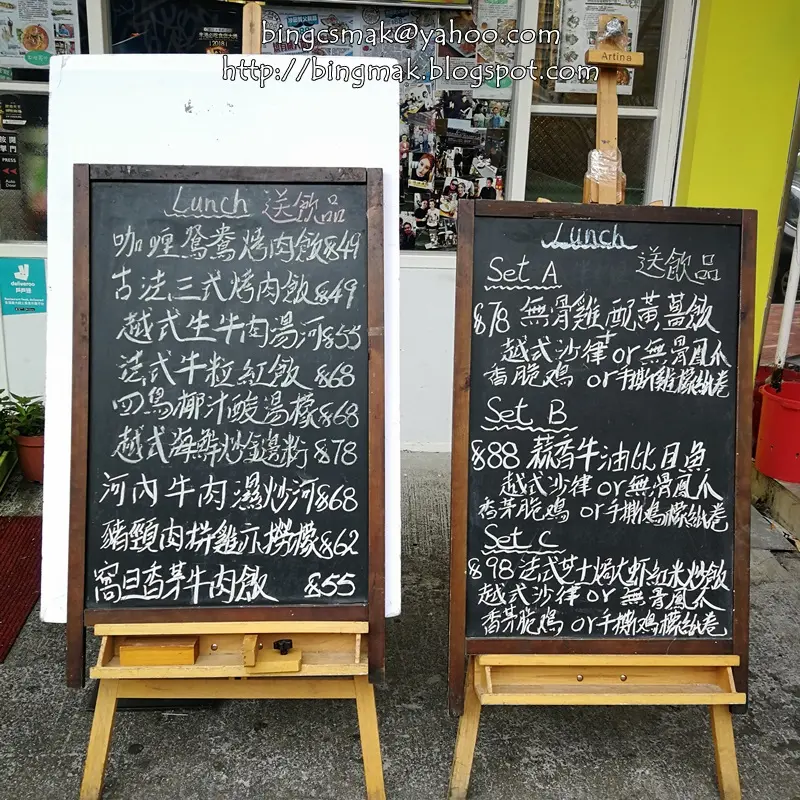 bingcsmak@yahoo.com
http://bingmak.blogspot.com
Artina
PRESS
deliveroo
Lunch 送飲品
咖喱鴛鴦烤肉飯$49
古法三式烤肉飯$49
越式生牛肉湯河$55
法式牛粒紅飯 $68
四島椰汁酸湯檬$68
越式海鮮炒金邊粉$78
河內牛肉濕炒河$68
豬頸肉拼雞亦撈檬$62
窩旦香茅牛肉飯 $55
Lunch 送飲品
Set A
$78 無骨雞配黃薑飯
+
越式沙律 or 無骨鳳爪
香脆鸡 or 手撕雞檬紙卷
Set B
$88 蒜香牛油比目魚
越式沙律 or 無骨鳳爪
香茅脆鸡 or 手撕鸡檬紙卷
Set C
$98 法式芝士焗大虾紅米炒飯
越式沙律 or 無骨鳳爪
香茅脆鸡 or 手撕鸡檬紙卷